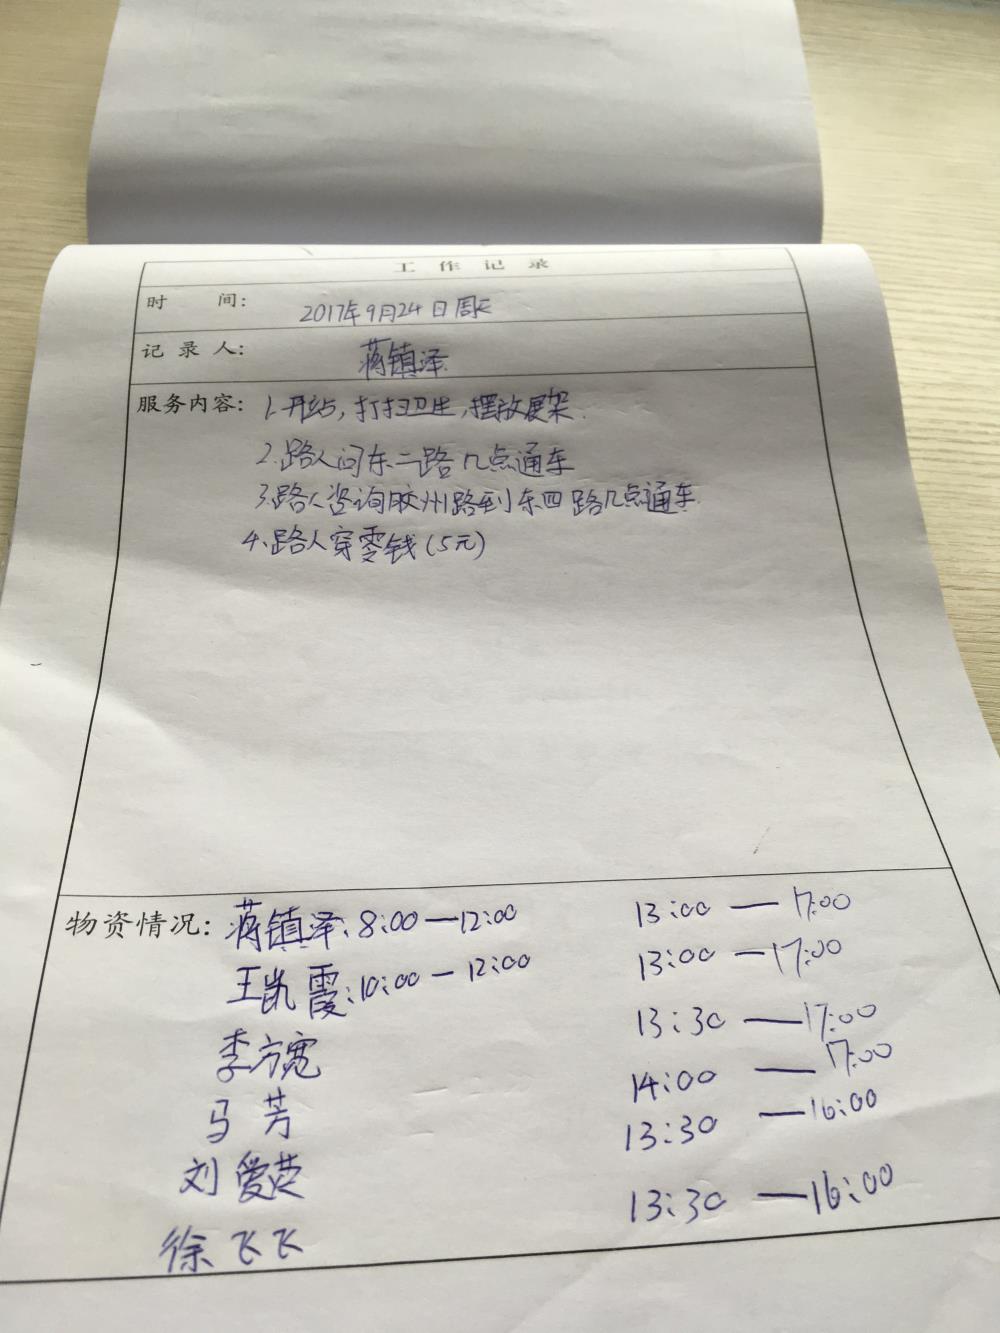 工作记录
时 间: 2017年9月24日周天
记录人: 蒋镇泽
服务内容: 1.开站,打扫卫生,摆放展架.
2.路人问东二路几点通车
3.路人咨询胶州路到东四路几点通车.
4.路人穿零钱(5元)
物资情况: 蒋镇泽:8:00—12:00 13:00—17:00
王凯霞:10:00—12:00 13:00—17:00
李方宽 13:30—17:00
马芳 14:00—17:00
刘爱荣 13:30—16:00
徐飞飞 13:30—16:00